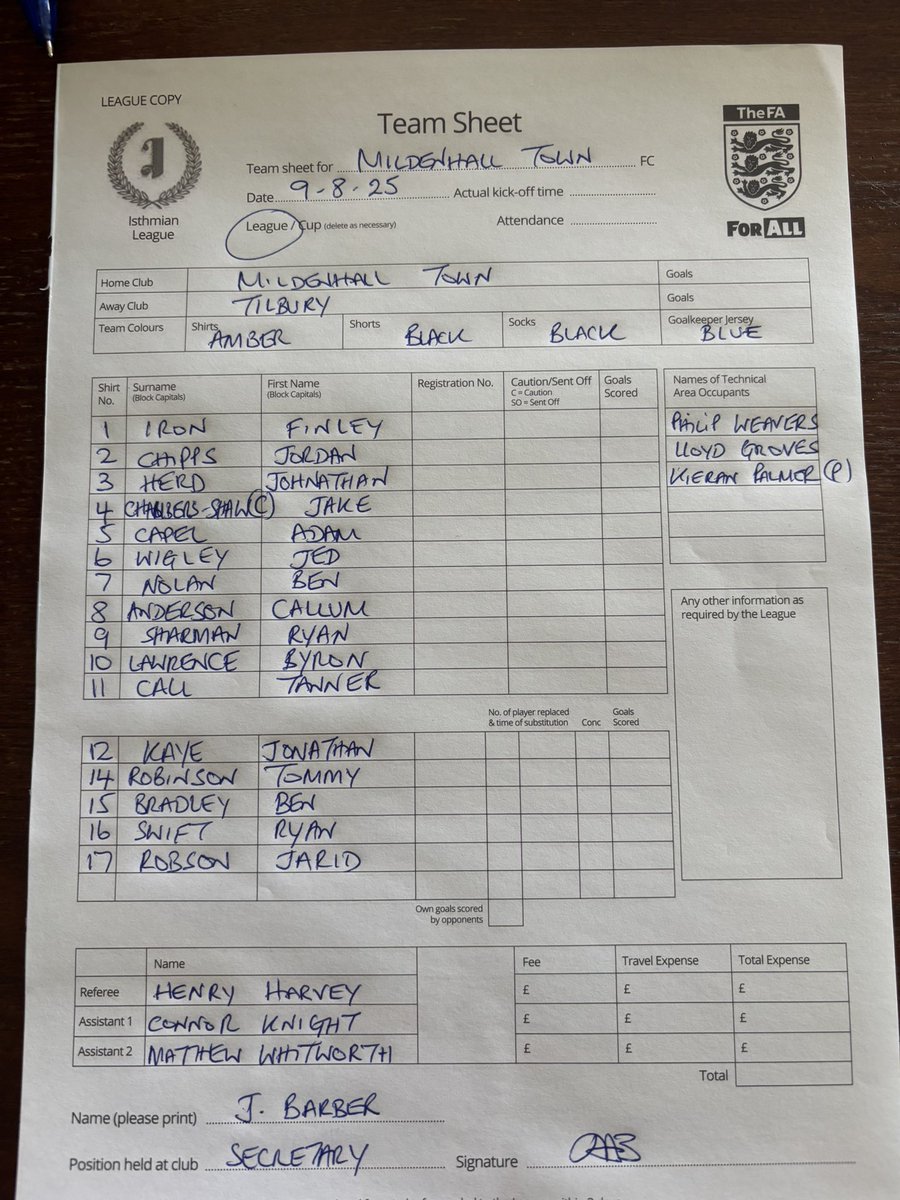 LEAGUE COPY
Isthmian
League
Team Sheet
TheFA
FOR ALL
Team sheet for MILDENHALL TOWN FC
Date 9-8-25 Actual kick-off time
League / Cup (delete as necessary) Attendance
Home Club MILDENHALL TOWN Goals
Away Club TILBURY Goals
Team Colours Shirts AMBER Shorts BLACK Socks BLACK Goalkeeper Jersey BLUE
Shirt No. Surname (Block Capitals) First Name (Block Capitals) Registration No. Caution/Sent Off C = Caution SO = Sent Off Goals Scored
1 IRON FINLEY
2 CHIPPS JORDAN
3 HERD JOHNATHAN
4 CHAMBERS-SHAW (C) JAKE
5 CAPEL ADAM
6 WIGLEY JED
7 NOLAN BEN
8 ANDERSON CALLUM
9 SHARMAN RYAN
10 LAWRENCE BYRON
11 CALL TANNER
Names of Technical
Area Occupants
PHILIP WEAVERS
LLOYD GROVES
KIERAN PALMER (P)
Any other information as
required by the League
No. of player replaced & time of substitution Conc Goals Scored
12 KAYE JONATHAN
14 ROBINSON TOMMY
15 BRADLEY BEN
16 SWIFT RYAN
17 ROBSON JARID
Own goals scored
by opponents
Name Fee Travel Expense Total Expense
Referee HENRY HARVEY £ £ £
Assistant 1 CONNOR KNIGHT £ £ £
Assistant 2 MATHEW WHITWORTH £ £ £
Total
Name (please print) J. BARBER
Position held at club SECRETARY Signature